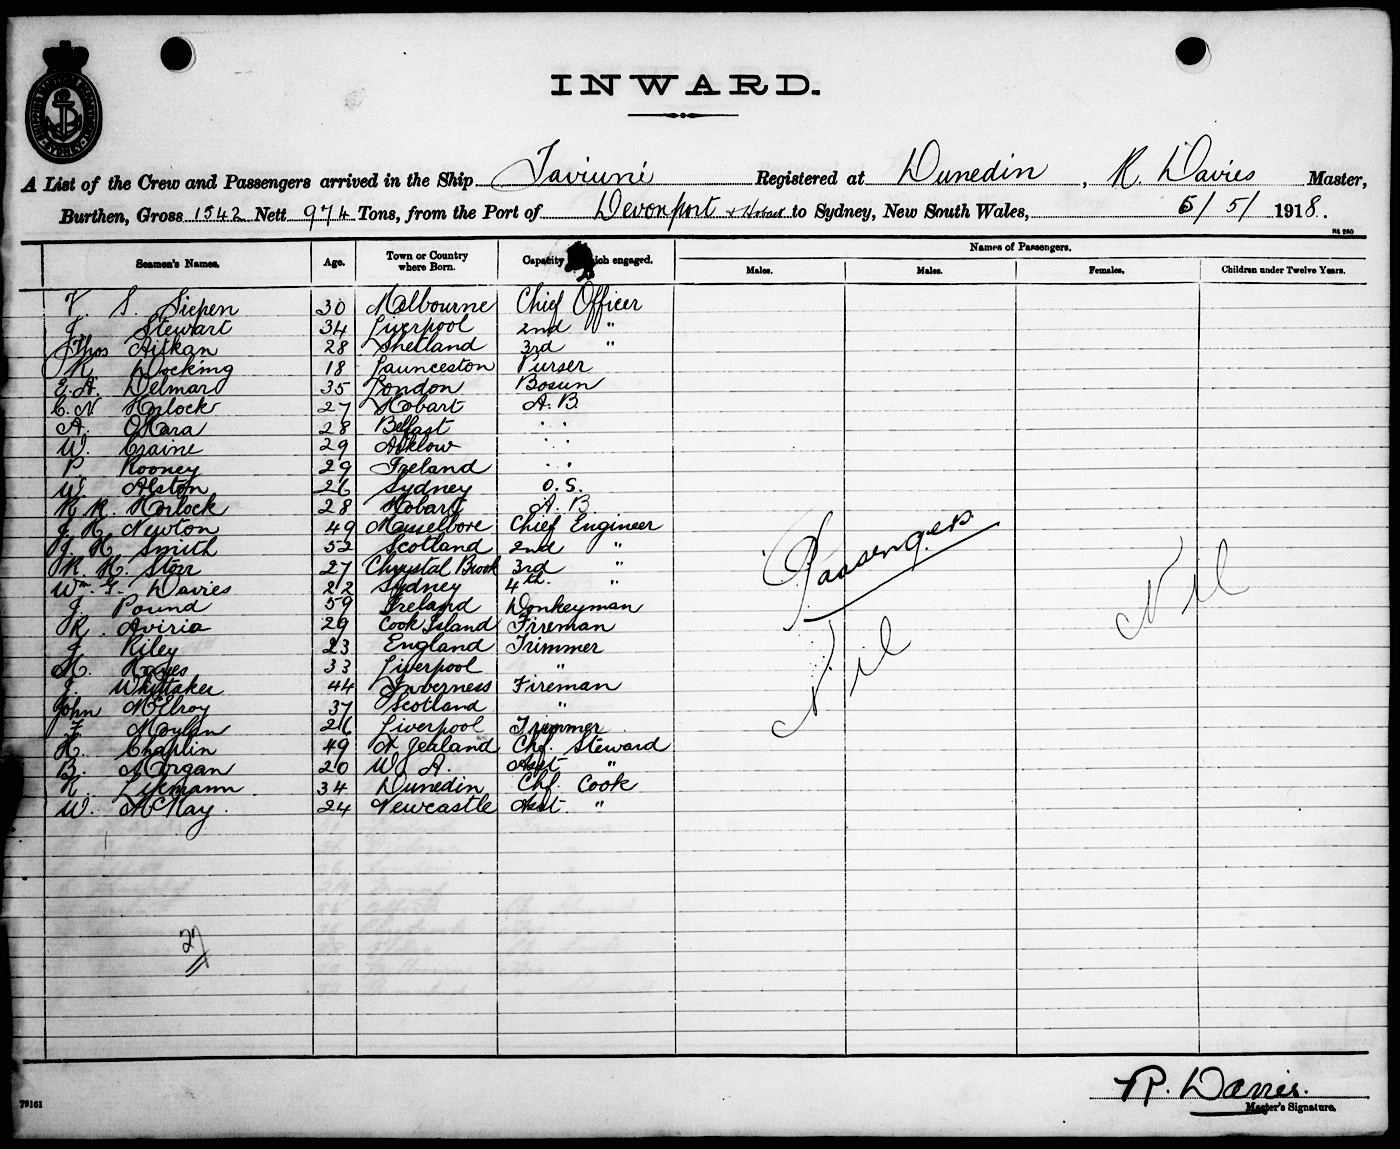 INWARD.
A List of the Crew and Passengers arrived in the Ship Taviuni Registered at Dunedin, R. Davies Master,
Burthen, Gross 1542 Nett 974 Tons, from the Port of Devonport & Hobart to Sydney, New South Wales, 6/5/1918.
Seamen's Names. Age. Town or Country where Born. Capacity which engaged. Names of Passengers.
Males. Males. Females. Children under Twelve Years.
V. S. Siepen 30 Melbourne Chief Officer
J. Stewart 34 Liverpool 2nd "
Thos Aitkan 28 Shetland 3rd "
R. Docking 18 Launceston Purser
E. A. Delmar 35 London Bosun
C. N. Horlock 27 Hobart A.B.
A. OHara 28 Belfast " "
W. Craine 29 Arklow " "
P. Rooney 29 Ireland " "
W. Alston 26 Sydney O.S.
R R. Horlock 28 Hobart A.B.
J H. Newton 49 Chief Engineer
J. H. Smith 52 Scotland 2nd "
R. H. Storr 27 Chrystal Brook 3rd "
Wm. G. Davies 22 Sydney 4th "
J. Pound 59 Ireland Donkeyman
R. Aviria 29 Cook Island Fireman
J. Riley 23 England Trimmer
H. Hayes 33 Liverpool "
J. Whittaker 44 Inverness Fireman
John McElroy 37 Scotland "
F. Moylan 26 Liverpool Trimmer
H. Chaplin 49 N Zealand Chf. Steward
B. Morgan 20 W. A. Asst "
R. Zikmann 34 Dunedin Chf. Cook
W. McKay 24 Newcastle Asst. "
Passengers
Nil
Nil
27
R. Davies.
Master's Signature.
79161